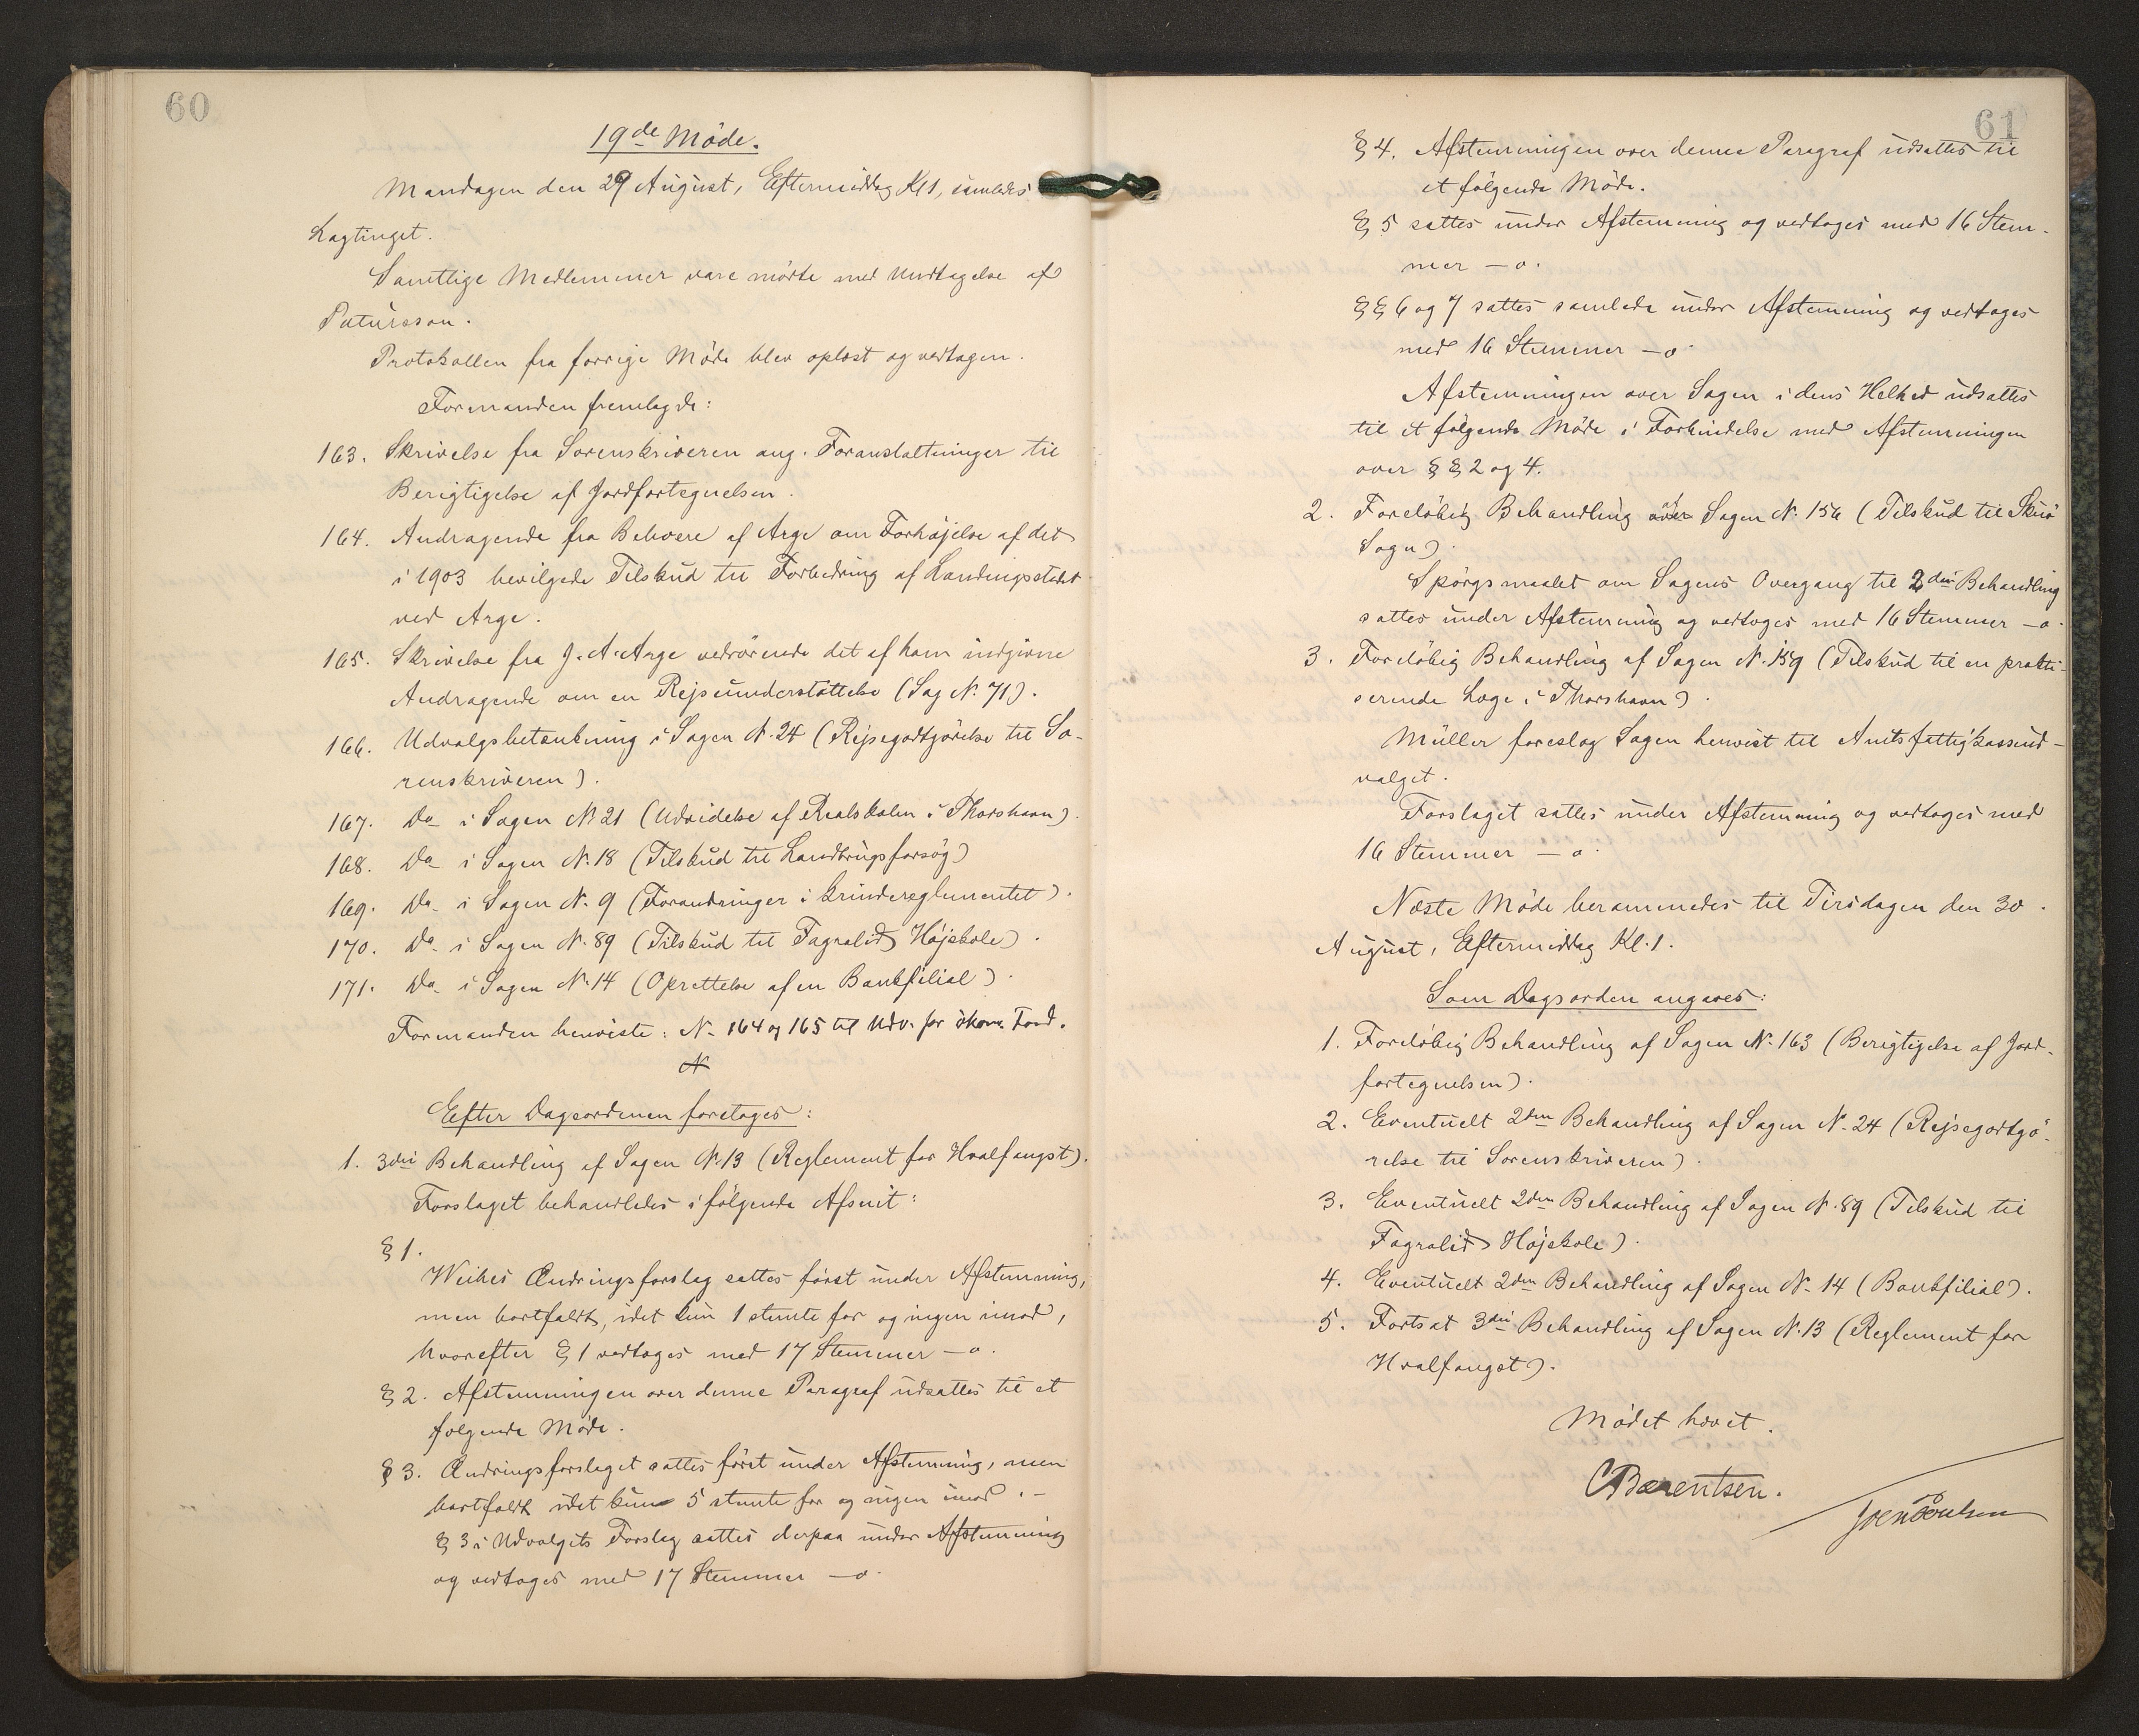 60
19de Möde.
Mandagen den 29 August, Eftermiddag Kl 1, samledes
Lagtinget.
Samtlige Medlemmer vare mödte med Undtagelse af
Patursson.
Protokollen fra forrige Möde blev oplæst og vedtagen.
Formanden fremlagde:
163. Skrivelse fra Sorenskriveren ang. Foranstaltninger til
Berigtigelse af Jordfortegnelsen.
164. Andragende fra Beboere af Arge om Forhøjelse af det
i 1903 bevilgede Tilskud til Forbedring af Landingsstedet
ved Arge.
165. Skrivelse fra J. A. Arge vedrörende det af ham indgivne
Andragende om en Rejseunderstöttelse (Sag N. 71).
166. Udvalgsbetænkning i Sagen N. 24 (Rejsegodtgörelse til So-
renskriveren).
167. Do i Sagen N. 21 (Udvidelse af Realskolen i Thorshavn).
168. Do i Sagen N. 18 (Tilskud til Landbrugsforsög)
169. Do i Sagen N. 9 (Forandringer i Grindereglementet).
170. Do i Sagen N. 89 (Tilskud til Fagralid Højskole).
171. Do i Sagen N. 14 (Oprettelse af en Bankfilial).
Formanden henviste: N. 164 og 165 til Udv. for ökon. Fond.
N
Efter Dagsordenen foretoges:
1. 3die Behandling af Sagen N. 13 (Reglement for Hvalfangst).
Forslaget behandledes i fölgende Afsnit:
§ 1.
Weihes Ændringsforslag sattes först under Afstemning,
men bortfaldt, idet kun 1 stemte for og ingen imod,
hvorefter § 1 vedtoges med 17 Stemmer – o.
§ 2. Afstemningen over denne Paragraf udsattes til et
fölgende Möde.
§ 3. Ændringsforslaget sattes först under Afstemning, men
bortfaldt idet kun 5 stemte for og ingen imod. –
§ 3 i Udvalgets Forslag sattes derpaa under Afstemning
og vedtoges med 17 Stemmer – o.
61
§ 4. Afstemningen over denne Paragraf udsattes til
et fölgende Möde.
§ 5 sattes under Afstemning og vedtoges med 16 Stem-
mer – o.
§§ 6 og 7 sattes samlede under Afstemning og vedtoges
med 16 Stemmer – o.
Afstemningen over Sagen i dens Helhed udsattes
til et fölgende Möde i Forbindelse med Afstemningen
over §§ 2 og 4.
2. Forelöbig Behandling over af Sagen N. 156 (Tilskud til Skuö
Sogn).
Spörgsmaalet om Sagens Overgang til 2den Behandling
sattes under Afstemning og vedtoges med 16 Stemmer – o.
3. Forelöbig Behandling af Sagen N. 159 (Tilskud til en prakti-
serende Læge i Thorshavn).
Müller foreslog Sagen henvist til Amtsfattigkasseud-
valget.
Forslaget sattes under Afstemning og vedtoges med
16 Stemmer – o.
Næste Möde berammedes til Tirsdagen den 30.
August, Eftermiddag Kl. 1.
Som Dagsorden angaves:
1. Forelöbig Behandling af Sagen N. 163 (Berigtigelse af Jord-
fortegnelsen).
2. Eventuelt 2den Behandling af Sagen N. 24 (Rejsegodtgö-
relse til Sorenskriveren).
3. Eventuelt 2den Behandling af Sagen N. 89 (Tilskud til
Fagralid Højskole).
4. Eventuelt 2den Behandling af Sagen N. 14 (Bankfilial).
5. Fortsat 3die Behandling af Sagen N. 13 (Reglement for
Hvalfangst).
Mödet hævet.
CBærentsen.
Joen Poulsen